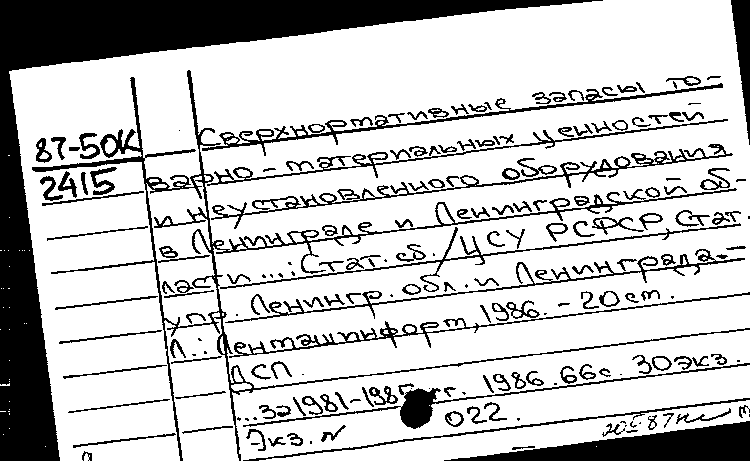 87-50К
2415
Сверхнормативные запасы то-
варно-материальных ценностей
и неустановленного оборудования
в Ленинграде и Ленинградской об-
ласти ...: Стат. сб. / ЦСУ РСФСР, Стат.
упр. Ленингр. обл. и Ленинграда. -
Л.: Ленмашинформ, 1986. - 20 см.
ДСП.
...за 1981-1985 гг. 1986. 66 с. 30 экз.
Экз. N 022.